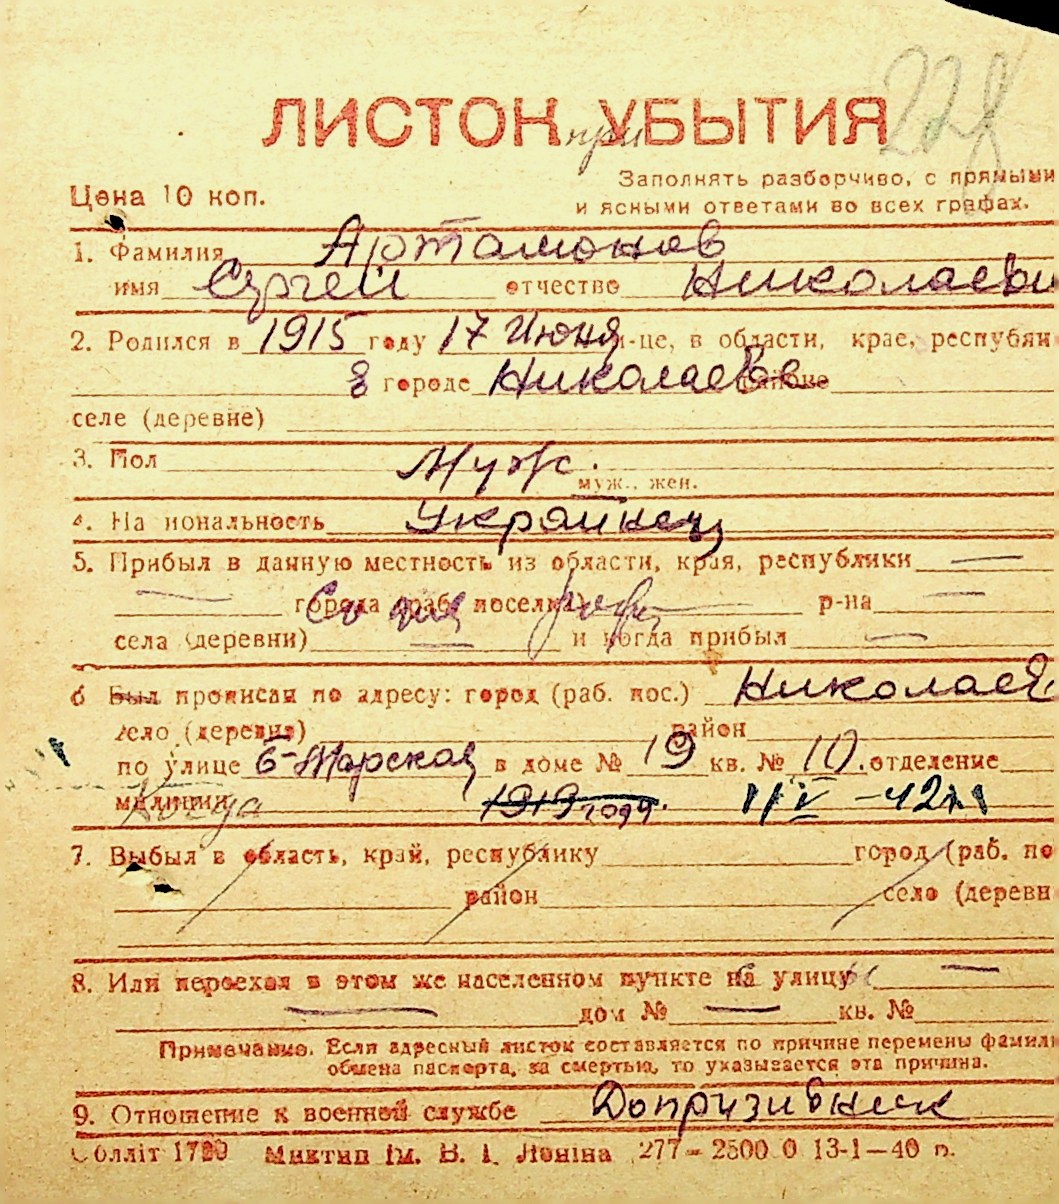 228
ЛИСТОК УБЫТИЯ
при
Цена 10 коп.
Заполнять разборчиво, с прямыми
и ясными ответами во всех графах.
1. Фамилия Артамонов
имя Сергей отчество Николаеви
2. Родился в 1915 году 17 Июня м-це, в области, крае, республи
в городе Николаеве районе
селе (деревне)
3. Пол Муж.
муж., жен.
4. На иональность Украинец
5. Прибыл в данную местность из области, края, республики —
— города (раб. поселка) — р-на —
села (деревни) — и когда прибыл —
6 Был прописан по адресу: город (раб. пос.) Николаев
село (деревня) район
по улице Б-Морская в доме № 19 кв. № 10. отделение
милиции Когда 1919 году. 1/V-42
7. Выбыл в область, край, республику город (раб. по
район село (деревн
8. Или переехал в этом же населенном пункте на улицу —
— дом № — кв. №
Примечание. Если адресный листок составляется по причине перемены фамили
обмена паспорта, за смертью, то указывается эта причина.
9. Отношение к военной службе Допризивник
Облліт 1720 Миктип Ім. В. І. Леніна 277—2500 0 13-1—40 р.